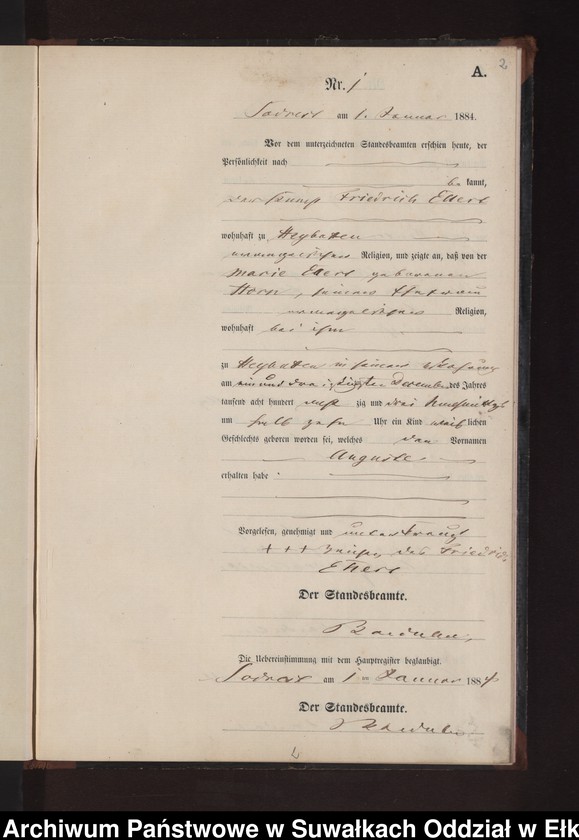 2
A.
Nr. 1
am 1. Januar 1884.
Vor dem unterzeichneten Standesbeamten erschien heute, der
Persönlichkeit nach
be kannt,
der Friedrich Ewert
wohnhaft zu
evangelischer Religion, und zeigte an, daß von der
Marie Ewert geborenen
Horn, seiner Ehefrau
evangelischer Religion,
wohnhaft bei ihm
zu in seiner Wohnung
am Dezember des Jahres
tausend acht hundert acht zig und drei Nachmittags
um halb zehn Uhr ein Kind weib lichen
Geschlechts geboren worden sei, welches den Vornamen
Auguste
erhalten habe
Vorgelesen, genehmigt und unterkreuzt
+ + + des Friedrich
Ewert
Der Standesbeamte.
Die Uebereinstimmung mit dem Hauptregister beglaubigt.
am 1 ten Januar 1884
Der Standesbeamte.
Archiwum Państwowe w Suwałkach Oddział w Ełk